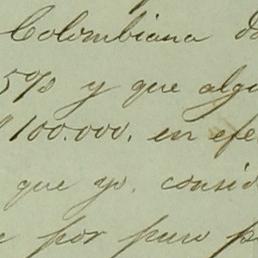 Colombiana d
5% y que algu
$100.000. en efe
que yo, consid
e por puro p